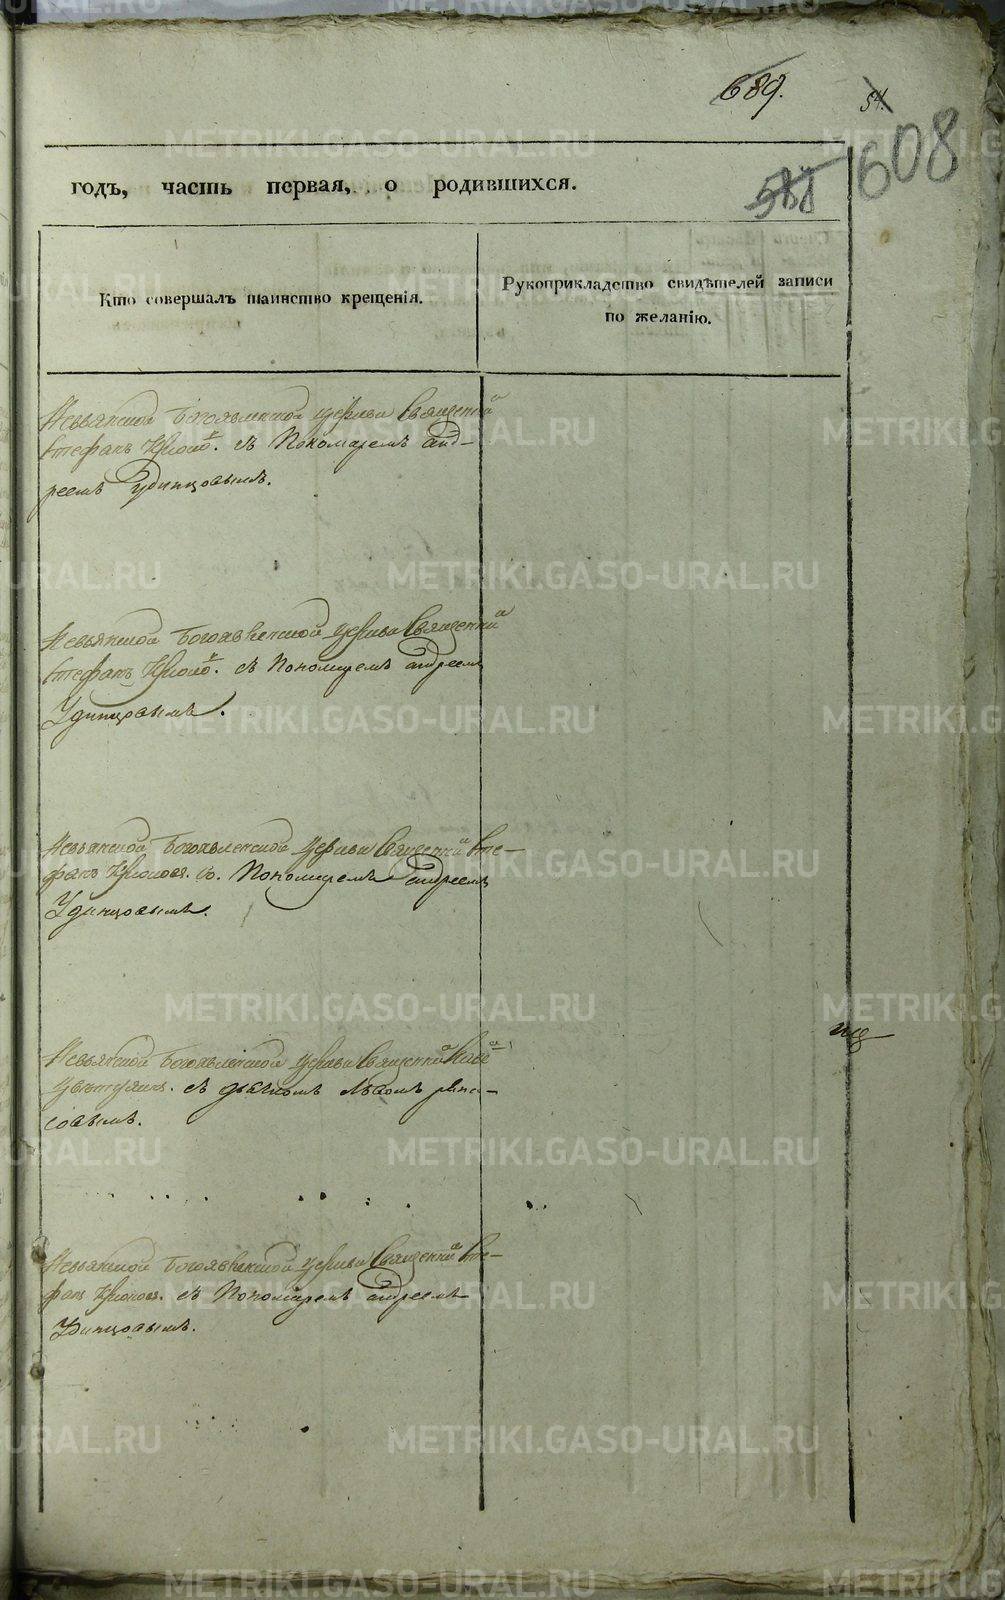 689.
54.
608
588
годъ, часть первая, о родившихся.
Кто совершалъ таинство крещенія.
Рукоприкладство свидѣтелей записи
по желанію.
Невьянской Богоявленской церкви Священникъ
Стефанъ с Пономаремъ Анд-
реемъ Удинцовымъ.
Невьянской Богоявленской церкви Священникъ
Стефанъ с Пономаремъ Андреемъ
Удинцовымъ.
Невьянской Богоявленской церкви Священникъ Сте-
фанъ Пономаремъ Андреемъ
Удинцовымъ.
Невьянской Богоявленской церкви Священникъ
съ дьячкомъ Львомъ
совымъ.
Невьянской Богоявленской церкви Священникъ Сте-
фанъ съ Пономаремъ Андреемъ
Удинцовымъ.
METRIKI.GASO-URAL.RU